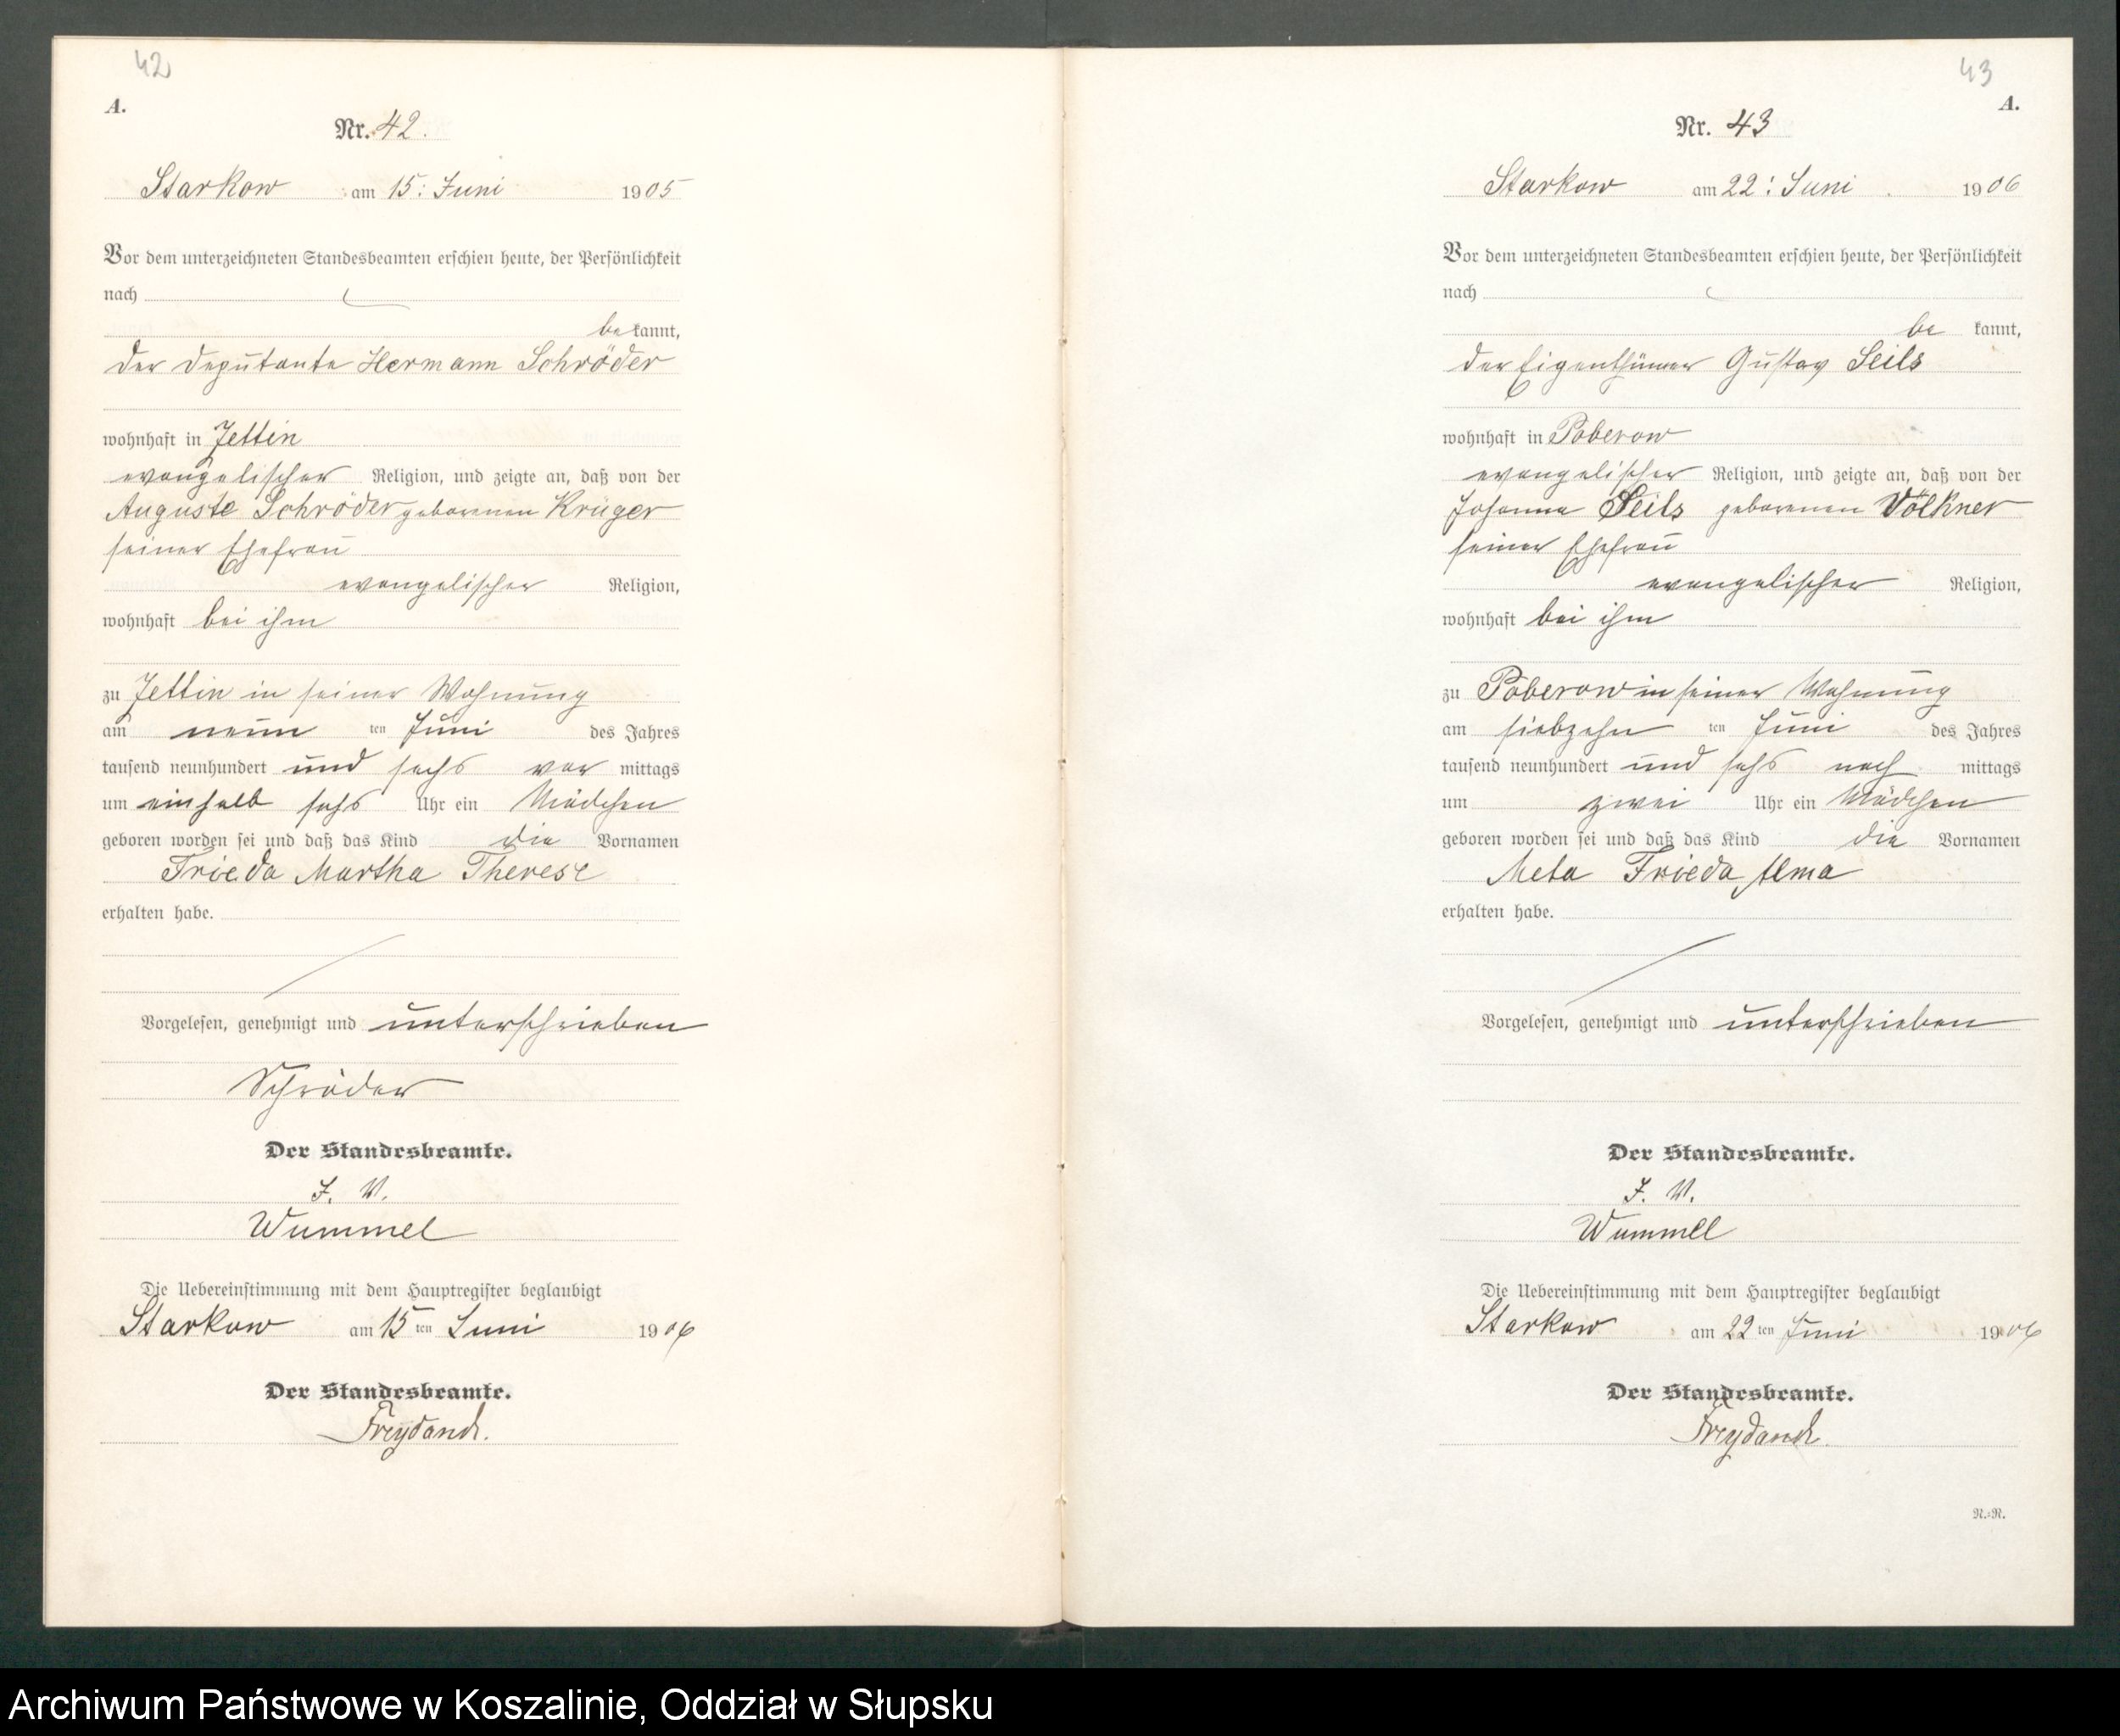 42
A.
Nr. 42.
Starkow am 15: Juni 1905
Vor dem unterzeichneten Standesbeamten erschien heute, der Persönlichkeit
nach
be kannt,
der Deputante Hermann Schröder
wohnhaft in Jettin
evangelischer Religion, und zeigte an, daß von der
Auguste Schröder geborenen Krüger
seiner Ehefrau
evangelischer Religion,
wohnhaft bei ihm
zu Jettin in seiner Wohnung
am neun ten Juni des Jahres
tausend neunhundert und sechs vor mittags
um einhalb sechs Uhr ein Mädchen
geboren worden sei und daß das Kind die Vornamen
Frieda Martha Therese
erhalten habe.
Vorgelesen, genehmigt und unterschrieben
Schröder
Der Standesbeamte.
J. V.
Wummel
Die Uebereinstimmung mit dem Hauptregister beglaubigt
Starkow am 15 ten Juni 1906
Der Standesbeamte.
Freydanck.
43
A.
Nr. 43
Starkow am 22: Juni 1906
Vor dem unterzeichneten Standesbeamten erschien heute, der Persönlichkeit
nach
be kannt,
der Eigenthümer Gustav Seils
wohnhaft in Poberow
evangelischer Religion, und zeigte an, daß von der
Johanna Seils geborenen Völkner
seiner Ehefrau
evangelischer Religion,
wohnhaft bei ihm
zu Poberow in seiner Wohnung
am siebzehn ten Juni des Jahres
tausend neunhundert und sechs nach mittags
um zwei Uhr ein Mädchen
geboren worden sei und daß das Kind die Vornamen
Meta Frieda Alma
erhalten habe.
Vorgelesen, genehmigt und unterschrieben
Der Standesbeamte.
J. V.
Wummel
Die Uebereinstimmung mit dem Hauptregister beglaubigt
Starkow am 22 ten Juni 1906
Der Standesbeamte.
Freydanck.
N.=N.
Archiwum Państwowe w Koszalinie, Oddział w Słupsku